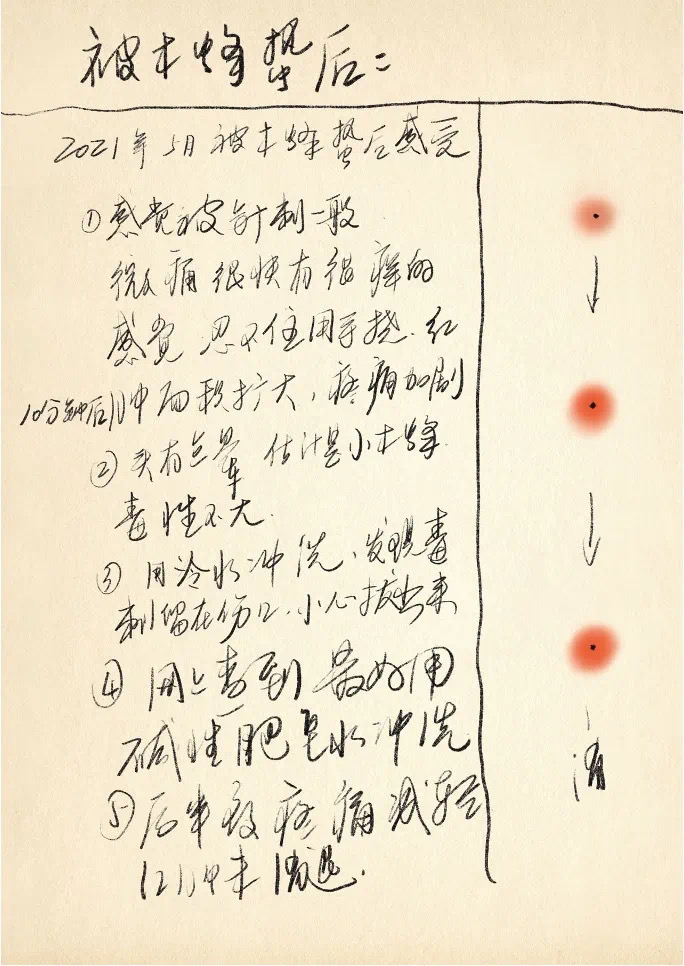 被木蜂蛰后：
2021年5月被木蜂蛰后感受
①感觉被针刺一般
微痛 很快有很痒的
感觉 忍不住用手挠.红
10分钟后肿面积扩大，疼痛加剧
②头有点晕 估计是小木蜂
毒性不大.
③用冷水冲洗、发现毒
刺留在伤口.小心拔出来
④用上查到 最好用
碱性肥皂水冲洗
⑤后半夜疼痛减轻
但肿未消退.
消